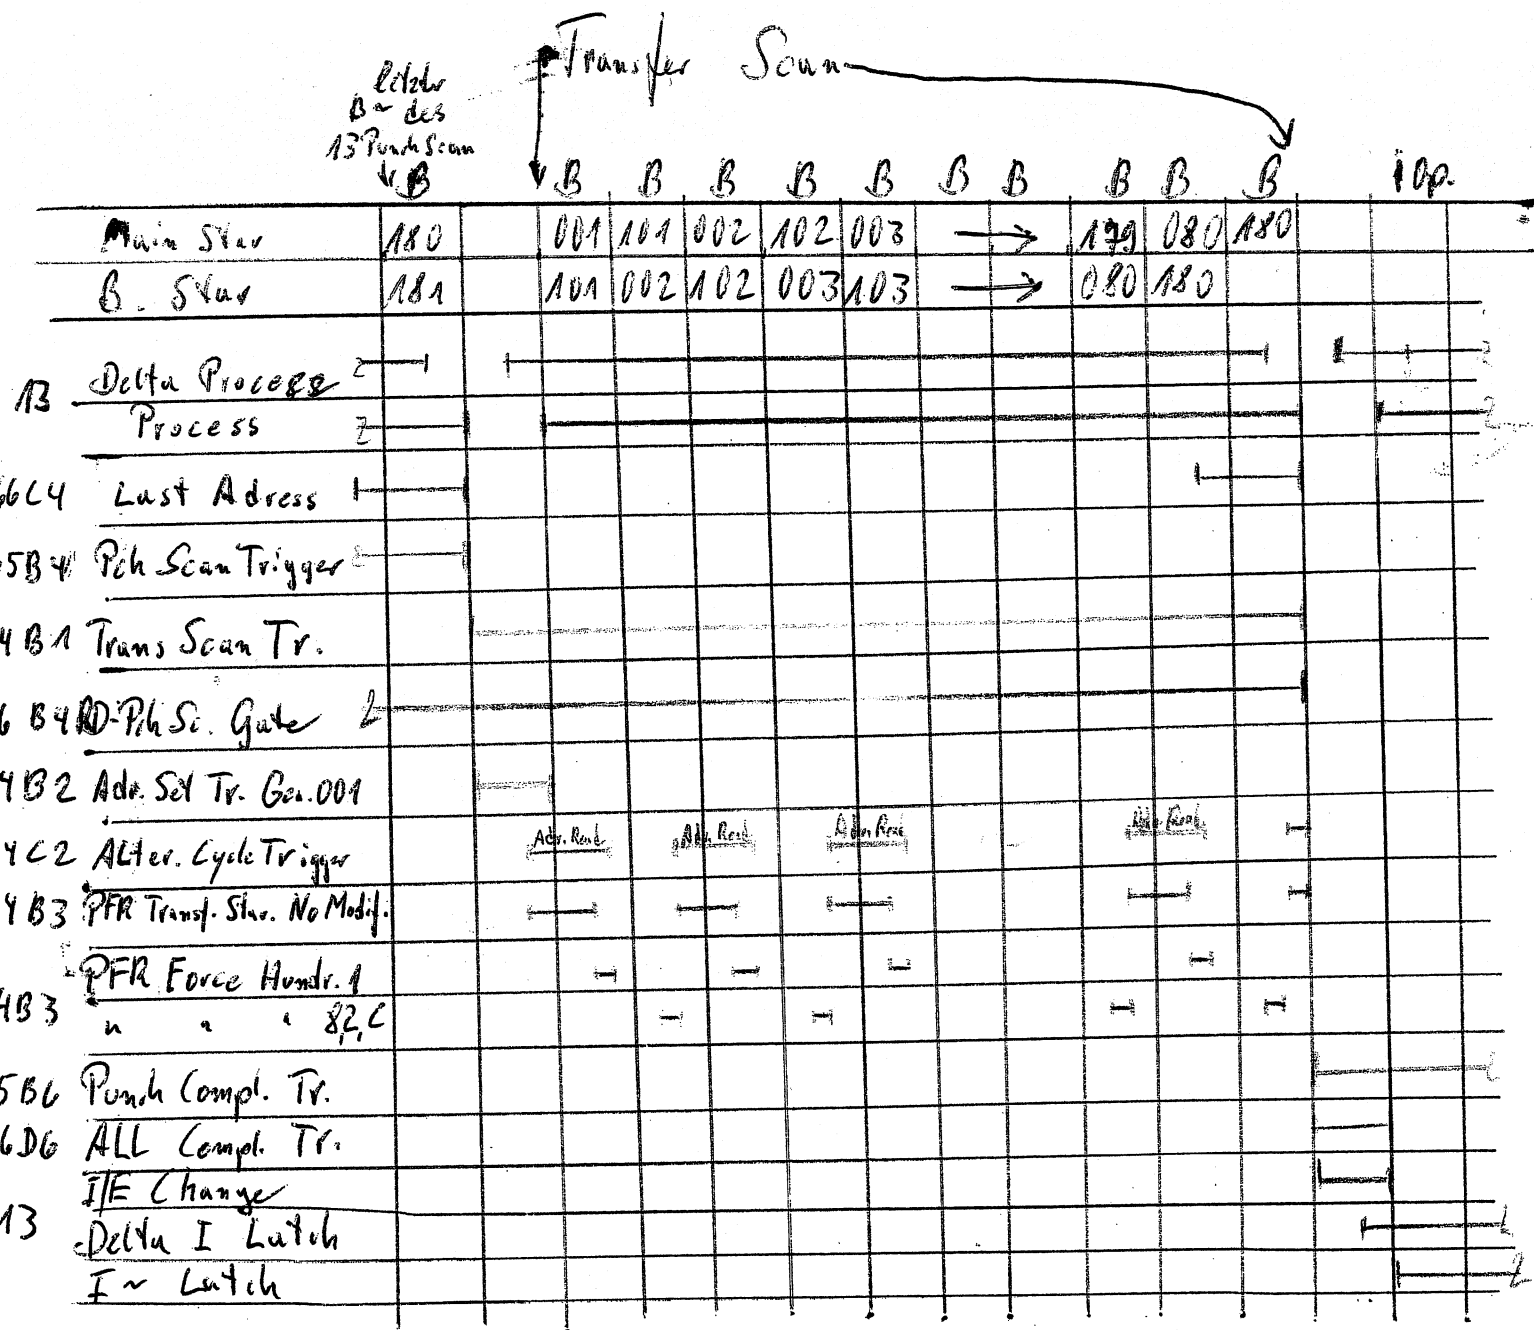 Transfer Scan
letzter
B~ des
13 Punch Scan
B B B B B B B B B B B I Op.
Main Star 180 001 101 002 102 003 → 179 080 180
B. Star 181 101 002 102 003 103 → 080 180
13 Delta Process
Process
66C4 Last Adress
5B4 Pch Scan Trigger
4B1 Trans Scan Tr.
6B4 RD-Pch Sc. Gate
4B2 Adr. Set Tr. Gen. 001
4C2 ALter. Cycle Trigger Adv. Read Adv. Read Adv. Read Adv. Read
4B3 PFR Transf. Star. No Modif.
PFR Force Hundr. 1
4B3 " " " 8,2,C
5B6 Punch Compl. Tr.
6D6 ALL Compl. Tr.
I/E Change
13 Delta I Latch
I~ Latch